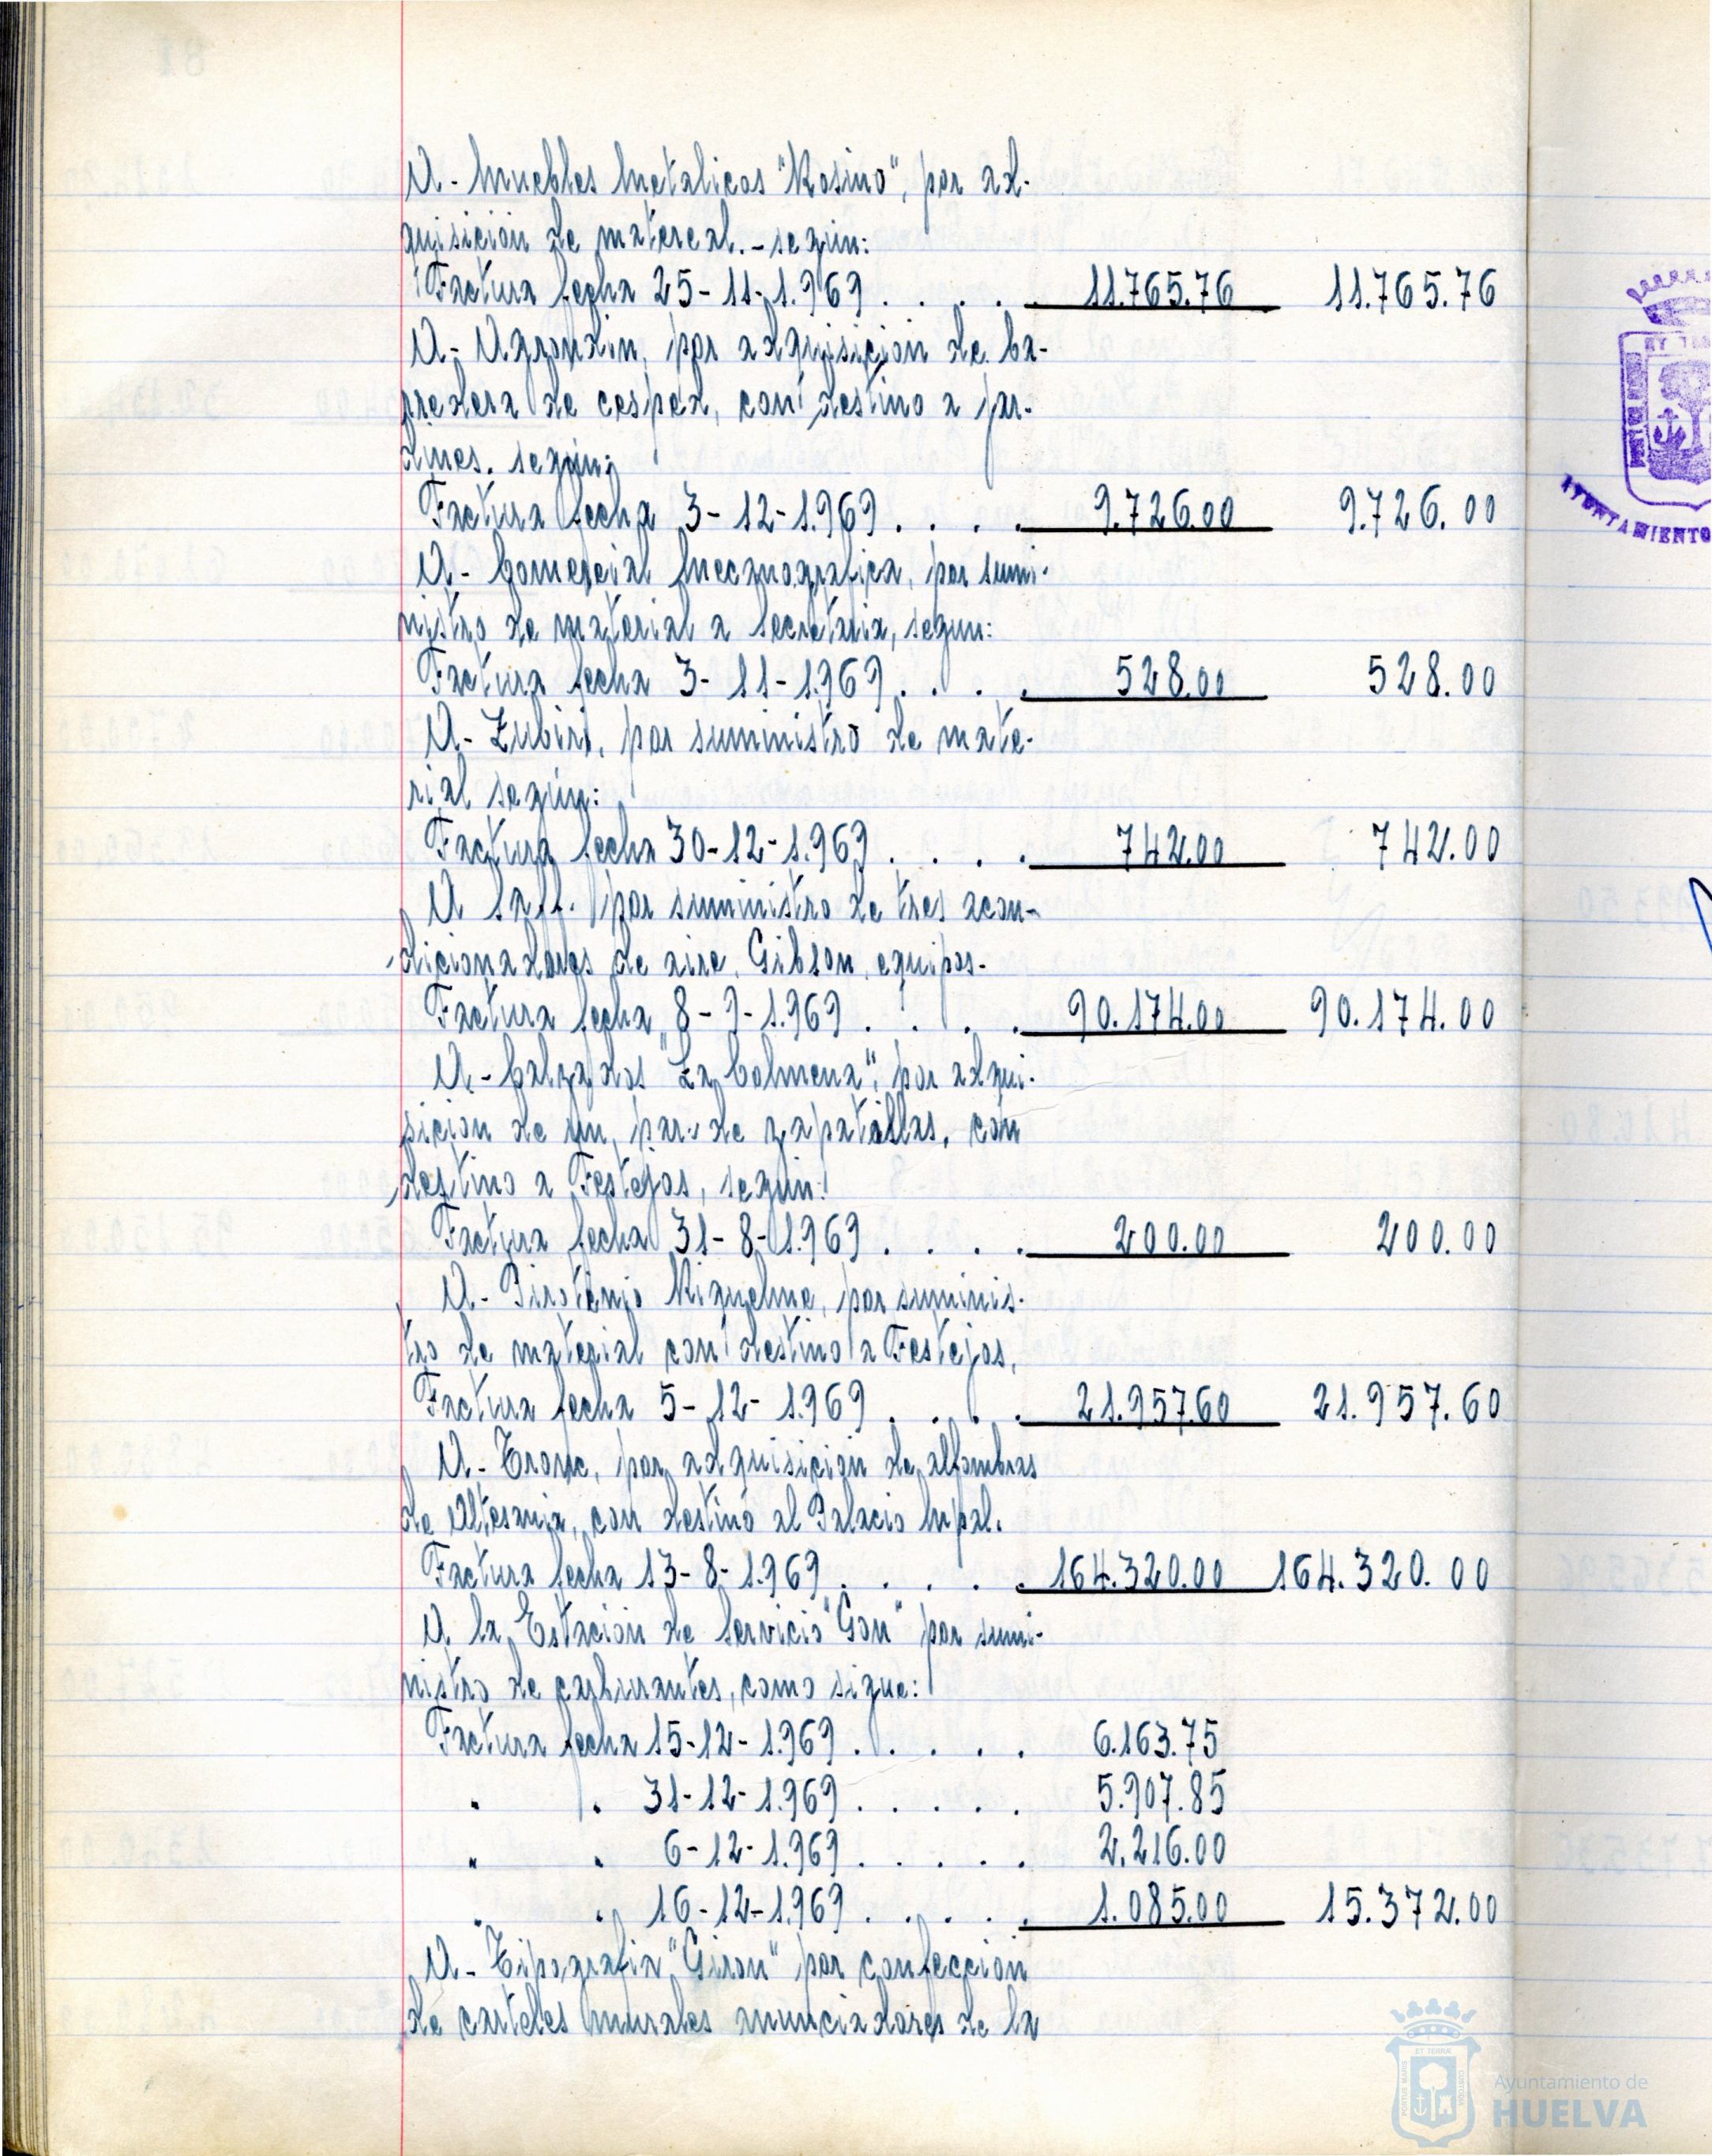 A.- Muebles Metalicos "Rosino", por ad-
quisición de matereal.- según:
Factura fecha 25-11-1.969 . . . . 11.765.76 11.765.76
A.- Agrondin, por adquisición de ba-
rredera de cesped, con destino a jar-
dines. según:
Factura fecha 3-12-1.969 . . . . 9.726.00 9.726.00
A.- Comercial Mecanografica, por sumi-
nistro de material a Secretaria, segun:
Factura fecha 3-11-1.969 . . . . 528.00 528.00
A.- Zubiri, por suministro de mate-
rial según:
Factura fecha 30-12-1.969 . . . . 742.00 742.00
A Saff. por suministro de tres acon-
dicionadores de aire, Gibson, equipos.
Factura fecha 8-9-1.969 . . . . 90.174.00 90.174.00
A.- Calzados "La Colmena", por adqui-
sicion de un par de zapatillas, con
destino a Festejos, según:
Factura fecha 31-8-1.969 . . . . 200.00 200.00
A.- Pirotenio Riquelme, por suminis-
tro de material con destino a Festejos,
Factura fecha 5-12-1.969 . . . . 21.957.60 21.957.60
A.- Cronic, por adquisición de alfombras
de, con destino al Palacio Mpal.
Factura fecha 13-8-1.969 . . . . . 164.320.00 164.320.00
A la Estación de Servicio "Gon" por sumi-
nistro de carburantes, como sigue:
Factura fecha 15-12-1.969 . . . . . 6.163.75
" " 31-12-1.969 . . . . . 5.907.85
" " 6-12-1.969 . . . . . 2.216.00
" " 16-12-1.969 . . . . . 1.085.00 15.372.00
A.- Tipografia "Giron" por confeccion
de carteles murales anunciadores de la
ET TERR
AYUNTAMIENTO
Ayuntamiento de
HUELVA